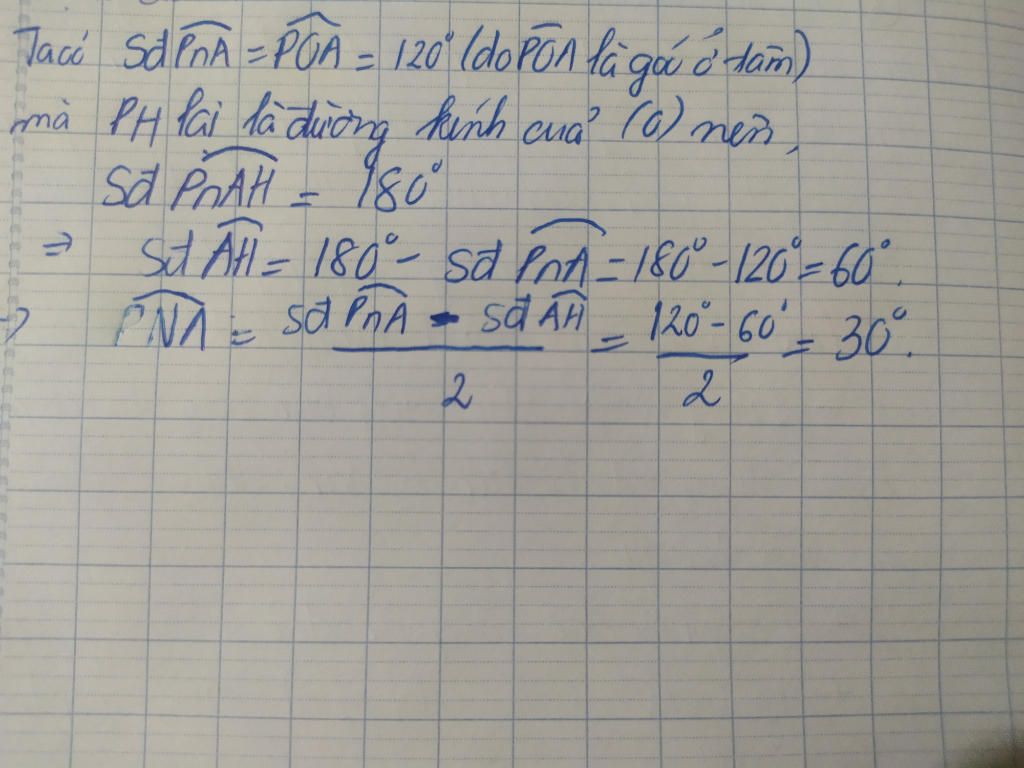 Ta có Sđ PnA = POA = 120° (do POA là góc ở tâm)
mà PH lại là đường kính của (O) nên,
Sđ PnAH = 180°
⇒ Sđ AH = 180° - Sđ PnA = 180° - 120° = 60°.
⇒ PNA = Sđ PnA - Sđ AH / 2 = 120° - 60° / 2 = 30°.